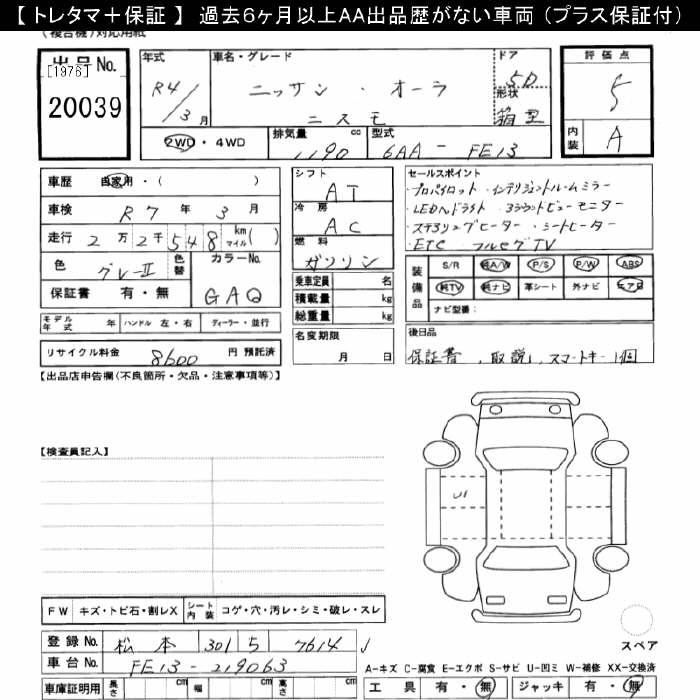 【 トレタマ＋保証 】 過去6ヶ月以上AA出品歴がない車両（プラス保証付）
(複合機)対応用紙
出品No.
[1976]
20039
年式
R4/3月
車名・グレード
ニッサン・オーラ
ニスモ
ドア
5D
形状
箱型
評価点
5
内装
A
2WD・4WD
排気量
1190 cc
型式
6AA - FE13
車歴 自家用・( )
車検 R7年3月
走行 2万2千548 km マイル( )
色 グレーII 色替 カラーNo. GAQ
保証書 有・無
シフト
AT
冷房
AC
燃料
ガソリン
乗車定員 名
積載量 kg
総重量 kg
名変期限
月 日
セールスポイント
・プロパイロット・インテリジェントルームミラー
・LEDヘッドライト 3ラウンドビューモニター
・ステアリングヒーター・シートヒーター
・ETC フルセグTV
装備品
S/R 純A/W P/S P/W ABS
純TV 純ナビ 革シート 外ナビ エアB
ナビ型番：
モデル年式 年 ハンドル 左・右 ディーラー・並行
リサイクル料金 8600 円 預託済
後日品
保証書、取説、スマートキー1個
【出品店申告欄(不良箇所・欠品・注意事項等)】
【検査員記入】
U1
FW キズ・トビ石・割レX シート内装 コゲ・穴・汚レ・シミ・破レ・スレ
スペア
登録No. 松本 301 5 7614
車台No. FE13-219063
車庫証明用 長さ cm 幅 cm 高さ cm
A-キズ C-腐食 E-エクボ S-サビ U-凹ミ W-補修 XX-交換済
工具 有・無 ジャッキ 有・無